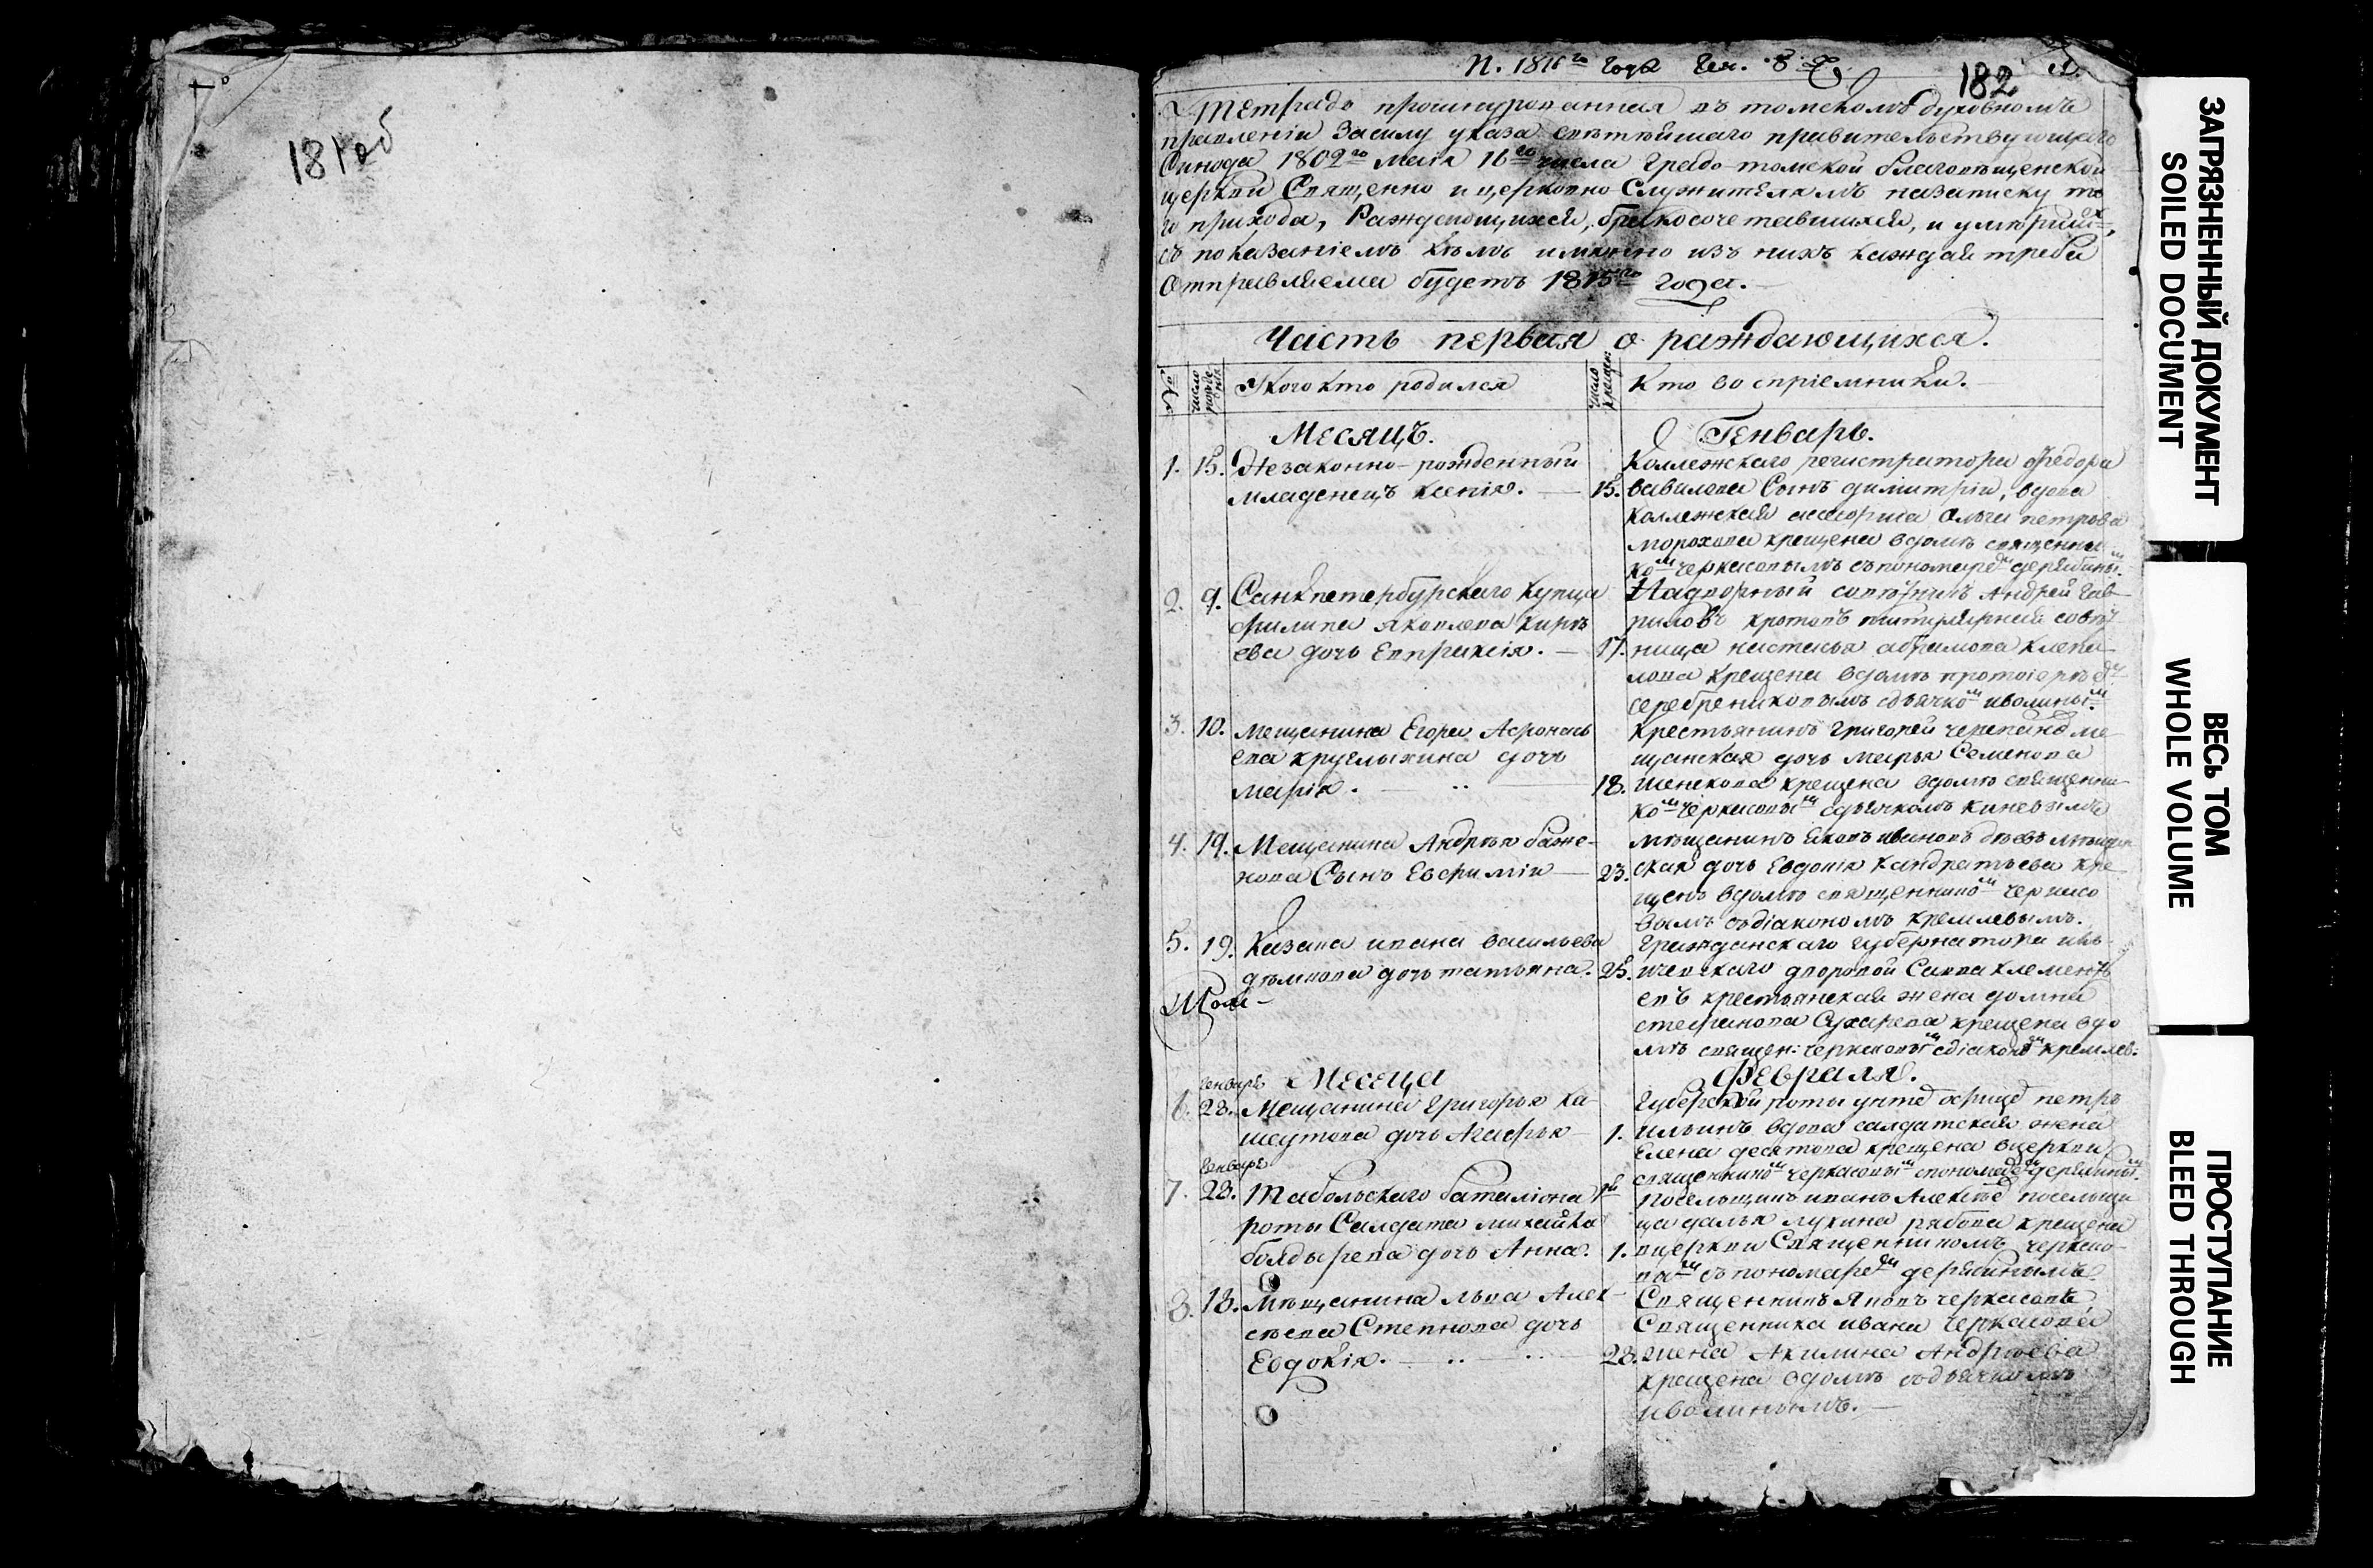 181об
П. 1816го года Ген. 8
182
Тетрадь прошнурованная въ томскомъ духовномъ
правленіи Засилу указа святѣйшаго правительствующаго
Синода 1802го Маія 16го числа Градо-томской благовѣщенской
церкви Священно и церковно служителямъ назаписку то
го прихода, Раждающихся, бракосочетавшихся, и умерши хъ,
съ показаніемъ кѣмъ имянно изъ нихъ каждая треба
Отправляема будетъ 1815го года.
Часть первая о раждающихся.
№
число рожденія
У кого кто родился
число крещенія
Кто воспріемники.
Месяцъ.
Генварь.
1. 15. Незаконно-рожденный
младенецъ Ксенія. — 15.
Коллежскаго регистратора Федора
вавилова Сынъ димитрій, вдова
Коллежская асесорша Ольга петрова
морохова крещена вдомѣ священни
ко м черкасовымъ съпономаре м дерябины м.
2. 9. Санкпетербургскаго купца
филипа яковлева Кирѣ
ева дочь Евпраксія. — 17.
Надворный совѣтникъ Андрей Гав-
риловъ кротовъ титулярная совѣт
ница настасья абрамова
крещена вдомѣ протоіерее м
серебрениковымъ сдьячко м иволины м.
3. 10. мещанина Егора Афонась
ева круглыхина дочь
марія. — 18.
Крестьянинъ григорей черепановъ ме
щанская дочь марья Семенова
шенкова крещена вдомѣ священни
ко м черкасовы м сдьячкомъ киневымъ
4. 19. Мещанина Андрѣя баже-
нова Сынъ Евфимій — 23.
мѣщанинъ Яковъ ивановъ мѣщан
ская дочь Евдокія Кандратьева кре
щенъ вдомѣ священнико м черкасо
вымъ съдіакономъ кремлевымъ.
5. 19. Казака ивана васильева
дочь татьяна. 25.
Гражданскаго губернатора
дворовой Савва клементь
евъ крестьянская жена домна
стефанова Сухарева крещена вдо
мѣ священ: черкасовы м сдіаконо м кремлев:
Том-
Месеца
Февраля.
генваря
6. 28. Мещанина григорья Ка-
шеутова дочь Агафья — 1.
Губернской роты унтеръ офицеръ петръ
ильинъ вдова салдатская жена
Елена десятова крещена вцеркви
священнико м черкасовы м спономаре м дерябины м.
Генваря
7. 28. Табольскаго батапіона
роты Салдата михайла
болдырева дочь Анна. 1.
посельщикъ иванъ Алексѣевъ посельщи
ца дарья лукина рябова крещена
вцеркви Священникомъ черкасо-
вы м съ пономаре м дерябинымъ.
8. 18. Мѣщанина льва Алек-
сѣева Степнова дочь
Евдокія. — 28.
Священникъ Яковъ черкасовъ,
Священника ивана черкасова
жена Акилина Андреева
крещена вдомѣ съдьячкомъ
иволинымъ.
ЗАГРЯЗНЕННЫЙ ДОКУМЕНТ
SOILED DOCUMENT
ВЕСЬ ТОМ
WHOLE VOLUME
ПРОСТУПАНИЕ
BLEED THROUGH